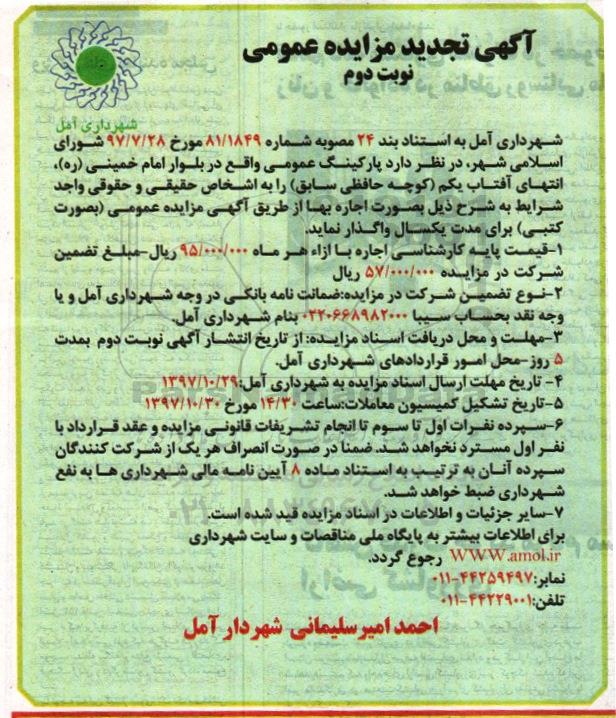 آگهی تجدید مزایده عمومی
نوبت دوم
شهرداری آمل
شهرداری آمل به استناد بند ۲۴ مصوبه شماره ۸۱/۱۸۴۹ مورخ ۹۷/۷/۲۸ شورای
اسلامی شهر، در نظر دارد پارکینگ عمومی واقع در بلوار امام خمینی (ره)،
انتهای آفتاب یکم (کوچه حافظی سابق) را به اشخاص حقیقی و حقوقی واجد
شرایط به شرح ذیل بصورت اجاره بها از طریق آگهی مزایده عمومی (بصورت
کتبی) برای مدت یکسال واگذار نماید.
۱-قیمت پایه کارشناسی اجاره با ازاء هر ماه ۹۵/۰۰۰/۰۰۰ ریال-مبلغ تضمین
شرکت در مزایده ۵۷/۰۰۰/۰۰۰ ریال
۲-نوع تضمین شرکت در مزایده:ضمانت نامه بانکی در وجه شهرداری آمل و یا
وجه نقد بحساب سیبا ۰۲۲۰۶۶۸۹۸۲۰۰۰ بنام شهرداری آمل.
۳-مهلت و محل دریافت اسناد مزایده: از تاریخ انتشار آگهی نوبت دوم بمدت
۵ روز-محل امور قراردادهای شهرداری آمل.
۴- تاریخ مهلت ارسال اسناد مزایده به شهرداری آمل:۱۳۹۷/۱۰/۲۹
۵-تاریخ تشکیل کمیسیون معاملات:ساعت ۱۴/۳۰ مورخ ۱۳۹۷/۱۰/۳۰
۶-سپرده نفرات اول تا سوم تا انجام تشریفات قانونی مزایده و عقد قرارداد با
نفر اول مسترد نخواهد شد. ضمنا در صورت انصراف هر یک از شرکت کنندگان
سپرده آنان به ترتیب به استناد ماده ۸ آیین نامه مالی شهرداری ها به نفع
شهرداری ضبط خواهد شد.
۷-سایر جزئیات و اطلاعات در اسناد مزایده قید شده است.
برای اطلاعات بیشتر به پایگاه ملی مناقصات و سایت شهرداری
WWW.amol.ir رجوع گردد.
نمابر:۴۴۲۵۹۴۹۷-۰۱۱
تلفن:۴۴۲۲۹۰۰۱-۰۱۱
احمد امیرسلیمانی شهردار آمل